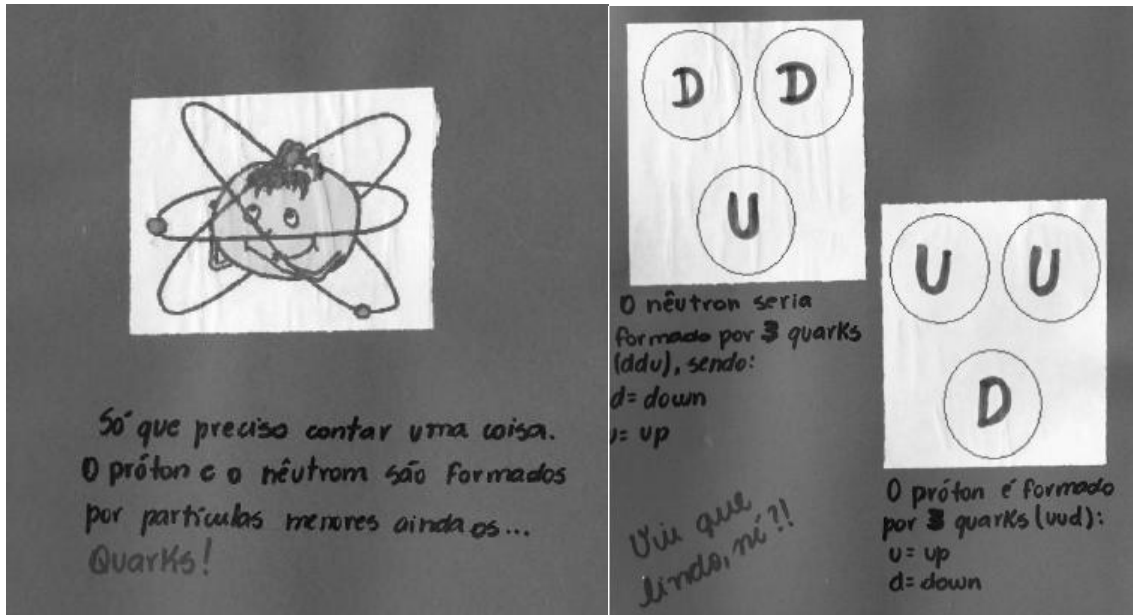 Só que preciso contar uma coisa.
O próton e o nêutrom são formados
por partículas menores ainda os...
Quarks!
D D
U
O nêutron seria
formado por 3 quarks
(ddu), sendo:
d= down
u= up
Viu que
lindo, né?!
U U
D
O próton é formado
por 3 quarks (uud):
u= up
d= down